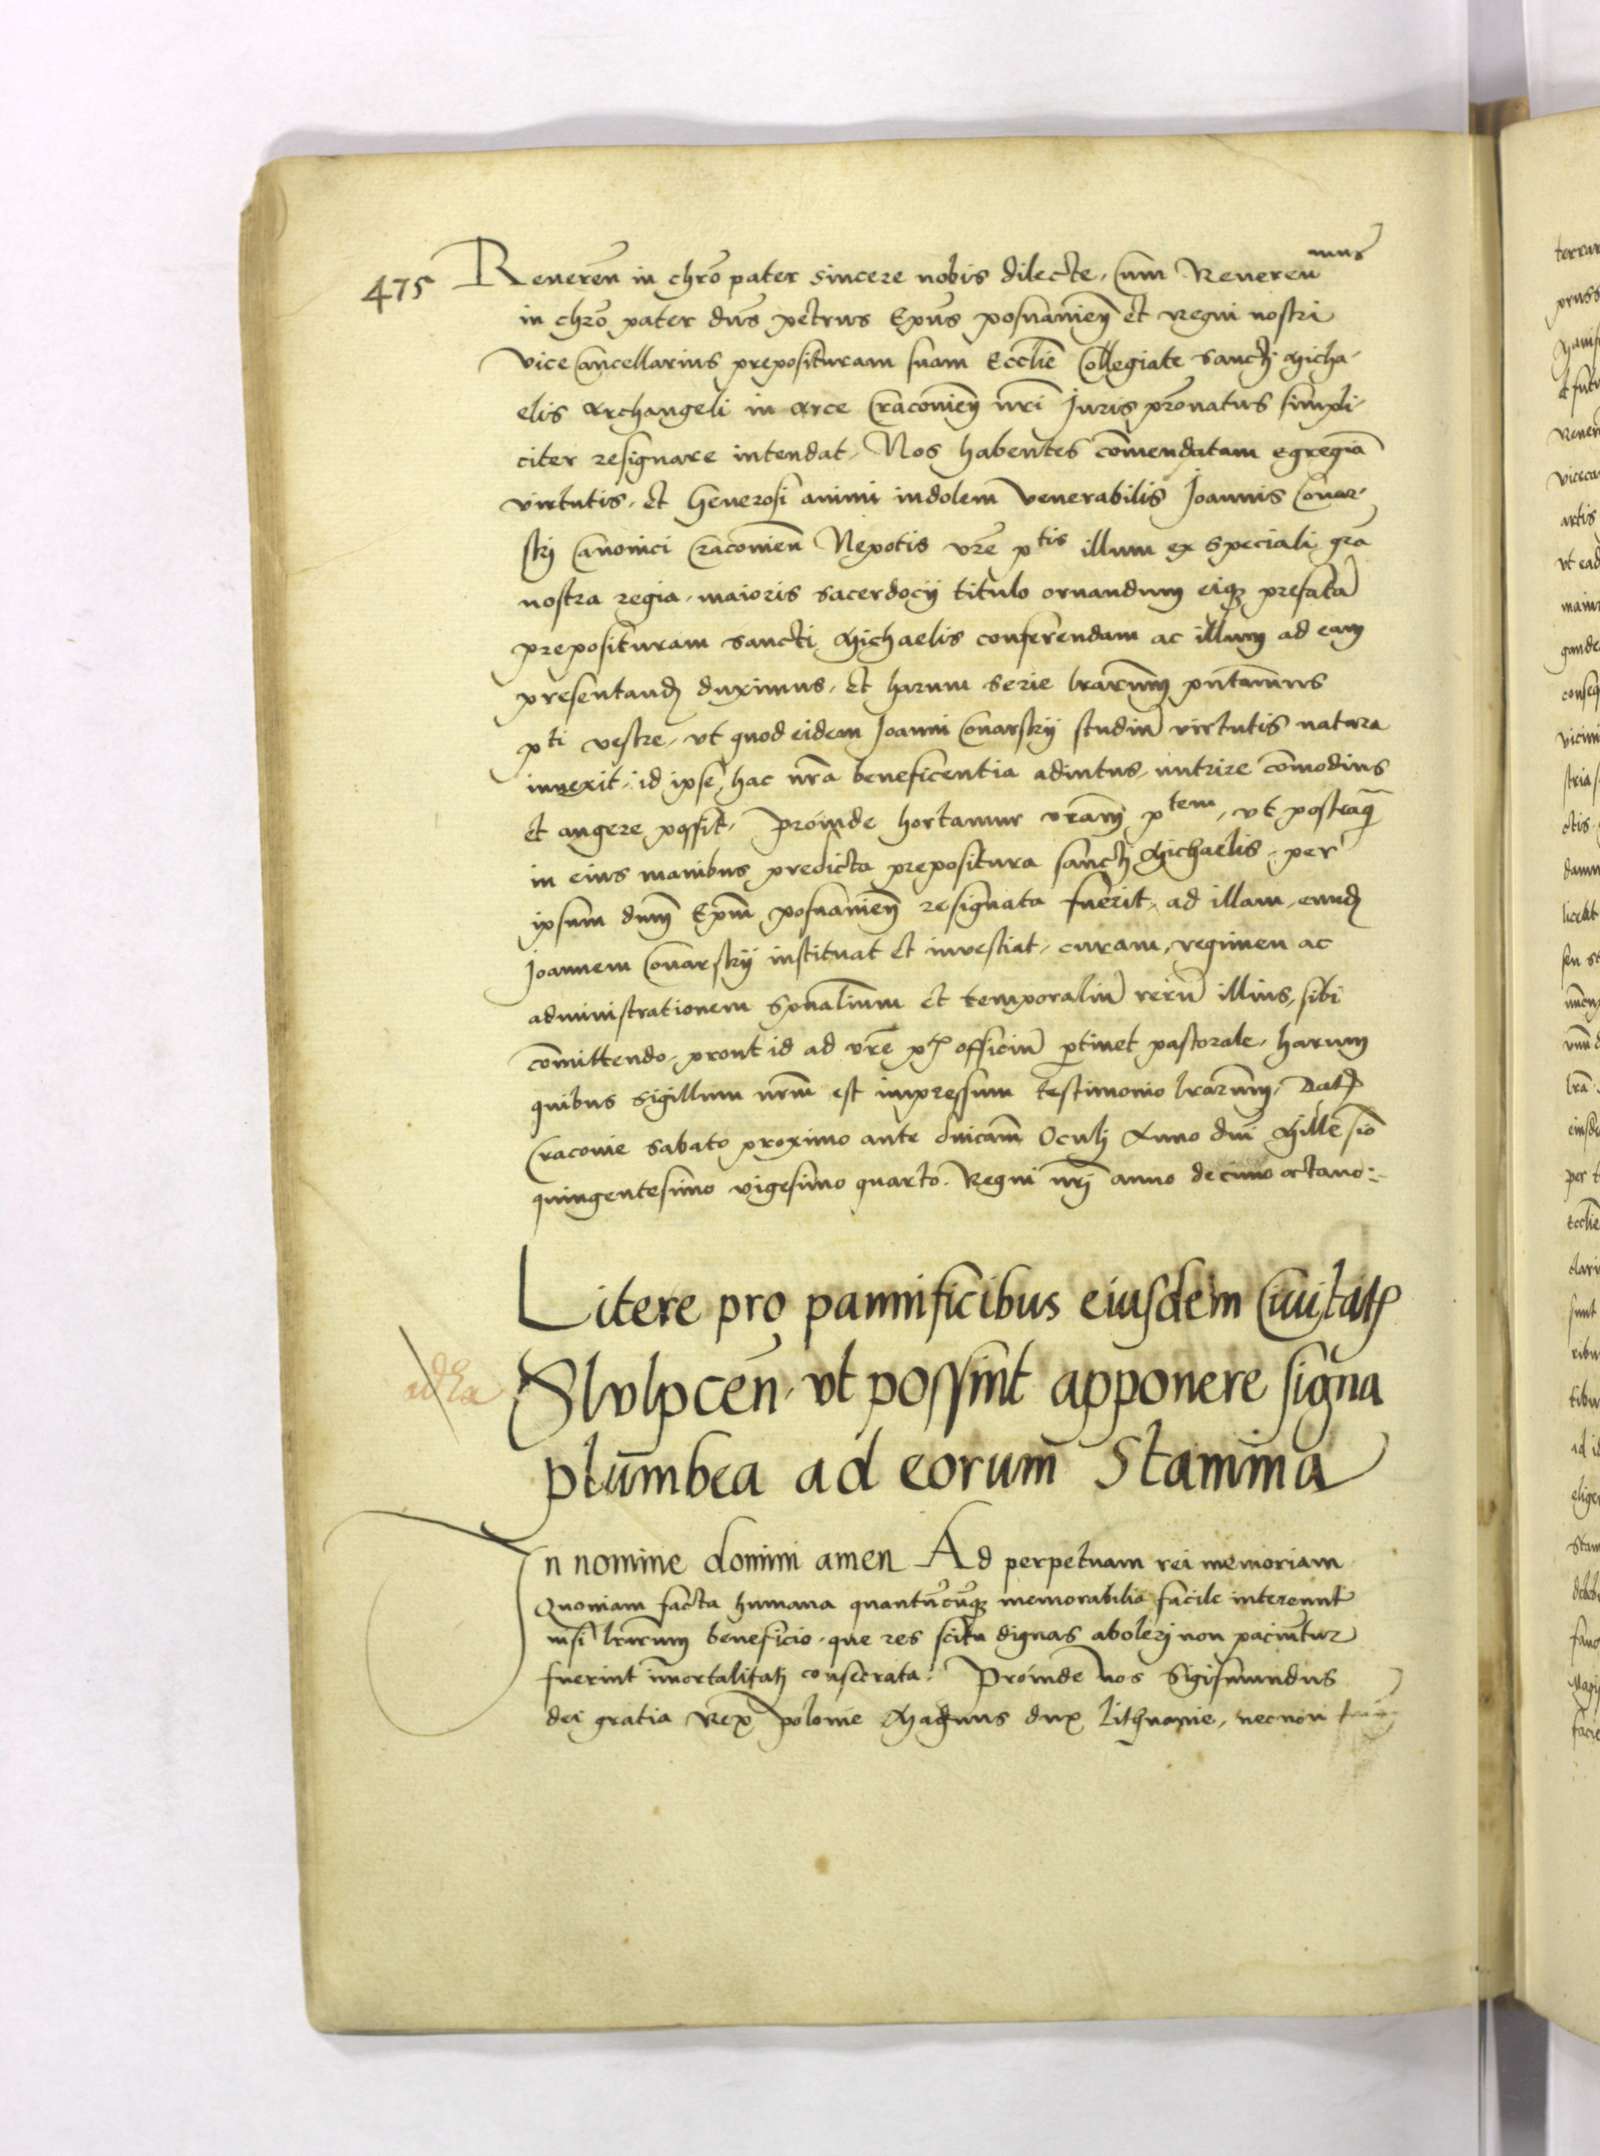 475 Reveren in chro pater sincere nobis dilecte, Cum Reverenmus
in chro pater dns petrus Epus posnanien et regni nostri
vice Cancellarius preposituram suam Ecclie Collegiate sancti Micha-
elis Archangeli in arce Cracovien nri Juris pronatus simpli-
citer resignare intendat, Nos habentes commendatam egregia
virtutis, et Generosi animi indolem venerabilis Joannis Conar-
skj Canonici Cracovien Nepotis vre ptis illum ex speciali gra
nostra regia, maioris sacerdocij titulo ornandum eique prefata
preposituram sancti Michaelis conferendam ac illum ad eam
presentand duximus, et harum serie lrarum pntamus
pti vestre, vt quod eidem Joanni Conarskij studiu virtutis natura
innexit, id ipse, hac nra beneficentia adiutus, nutrire comodius
et augere possit, proinde hortamur vram ptem, vt posteaq
in eius manibus predicta prepositura sancti Michaelis, per
ipsum dnm Epm posnanien resignata fuerit, ad illam, eund
Joannem Conarskij instituat et investiat, curam, regimen ac
administrationem spualium et temporaliu reru illius, sibi
comittendo, prout id ad vre pt officiu ptinet pastorale, harum
quibus sigillum nrm est impressum testimonio lrarum, Dat
Cracovie sabato proximo ante dnicam Oculj Anno dni Millesio
quingentesimo vigesimo quarto. Regni nrj anno decimo octavo:-
Litere pro pannificibus eiusdem Civitat
Slvlpcen, vt possint apponere signa
plumbea ad eorum Stamina
In nomine domini amen Ad perpetuam rei memoriam
Quoniam facta humana quantucuque memorabilia facile intereunt
nisi lrarum beneficio, que res scitu dignas abolerj non paciuntur
fuerint imortalitati consecrata: Proinde nos Sigismundus
dei gratia Rex polonie Magnus dux Lithuanie, necnon